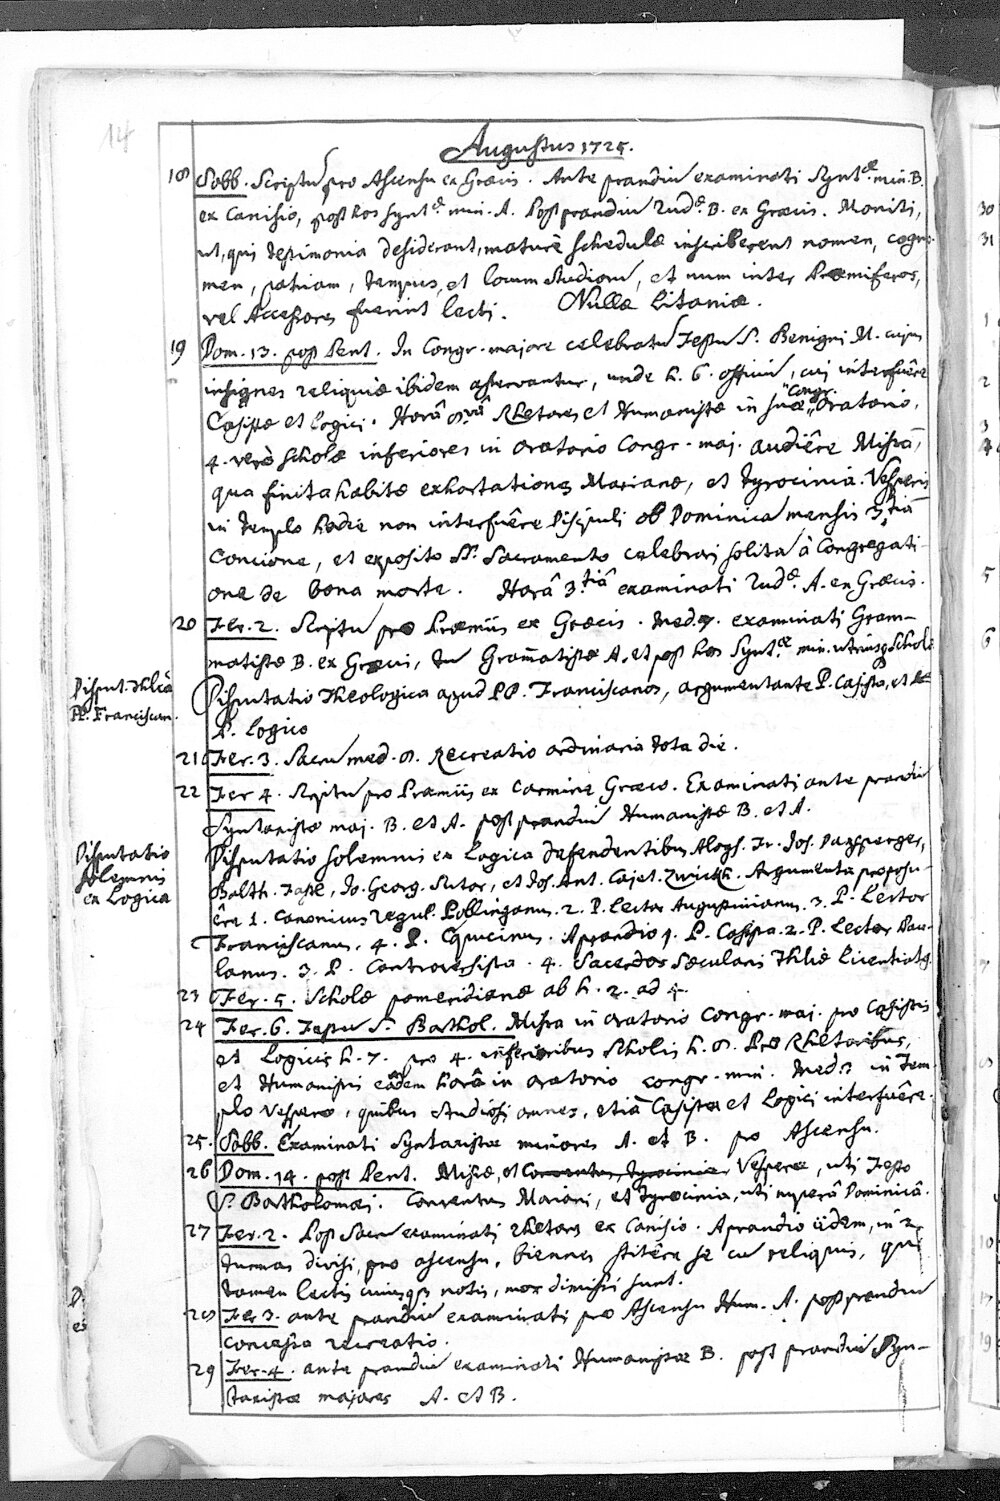 14
Augustus 1725.
18 Sabb. Scriptū pro Ascensu ex Græcis. Ante prandiū examinati Syntæ. min. B.
ex Canisio, post hos Syntæ min. A. Post prandiū Rudæ. B. ex Græcis. Moniti,
ut, qui testimonia desiderant, maturè schedulæ inscriberent nomen, cogno-
men, patriam, tempus, et locum studiorū, et num inter Præmiferos,
vel Accessores fuerint lecti. Nullæ Litaniæ.
19 Dom. 13. post Pent. In Congr. majore celebratū Festū S. Benigni M. cujus
insignes reliquiæ ibidem asservantur, unde h. 6. officiū, cui interfuêre
Casistæ et Logici. Horâ 8.vâ Rhetores et Humanistæ in suæ Congr. Oratorio,
4. verò scholæ inferiores in oratorio Congr. maj. audiêre Missā,
qua finita habitæ exhortationes Marianæ, et tyrocinia. Vesperis
in templo hodie non interfuêre Discipuli ob Dominica mensis 3.tiâ
Concione, et exposito SS. Sacramento celebrari solita â Congregati-
one de bona morte. Horâ 3.tiâ examinati Rudæ. A. ex Græcis.
20 Fer. 2. Scriptū pro Præmiis ex Græcis. Med. 7. examinati Gram-
matistæ B. ex Græcis, tū Gram̄atistæ A. et post hos Syntæ. min. utriusq Scholæ
Disput. Thlica
PP. Franciscan.
Disputatio Theologica apud PP. Franciscanos, argumentante P. Casista, et
P. Logico
21 Fer. 3. Sacrū med. 8. Recreatio ordinaria tota die.
22 Fer 4. Scriptū pro Præmiis ex Carmine Græco. Examinati ante prandiū
Syntaxistæ maj. B. et A. post prandiū Humanistæ B. et A.
Disputatio
solemnis
ex Logica
Disputatio solemnis ex Logica defendentibus Aloys. Fr. Jos.
Balth. Jo. Georg. Sutor, et Jos. Ant. Cajet. Argumenta proposu-
êre 1. Canonicus regul. Pollinganus. 2. P. Lector Augustinianus. 3. P. Lector
Franciscanus. 4. P. Capucinus. A prandio 1. P. Casista. 2. P. Lector Pau-
lanus. 3. P. Controversista. 4. Sacerdos Sæcularis Thliæ Licentiatq.
23 Fer. 5. Scholæ pomeridianæ ab h. 2. ad 4.
24 Fer. 6. Festū S. Barthol. Missa in oratorio Congr. maj. pro Casistis
et Logicis h. 7. pro 4. inferioribus Scholis h. 8. Pro Rhetoribus,
et Humanistis eâdem horâ in oratorio congr. min. Med. 3 in Tem-
plo Vesperæ, quibus studiosi omnes, etiā Casistæ et Logici interfuêre.
25. Sabb. Examinati Syntaxistæ minores A. et B. pro Ascensu.
26 Dom. 14. post Pent. Missæ, et Conventus, tyrocinia Vesperæ, uti Festo
S. Bartholomæi. Conventus Mariani, et tyrocinia, uti nuperâ Dominicâ.
27 Fer. 2. Post Sacrū examinati Rhetores ex Canisio. A prandio iidem, in 2
turmas divisi, pro ascensu, biennes stitêre se cū reliquis, qui
tamen lectis cuiusq notis, mox dimissi sunt.
28 Fer 3. ante prandiū examinati pro Ascensu Hum. A. post prandiū
concessa recreatio.
29 Fer. 4. ante prandiū examinati Humanistæ B. post prandiū Syn-
taxistæ majores A. et B.